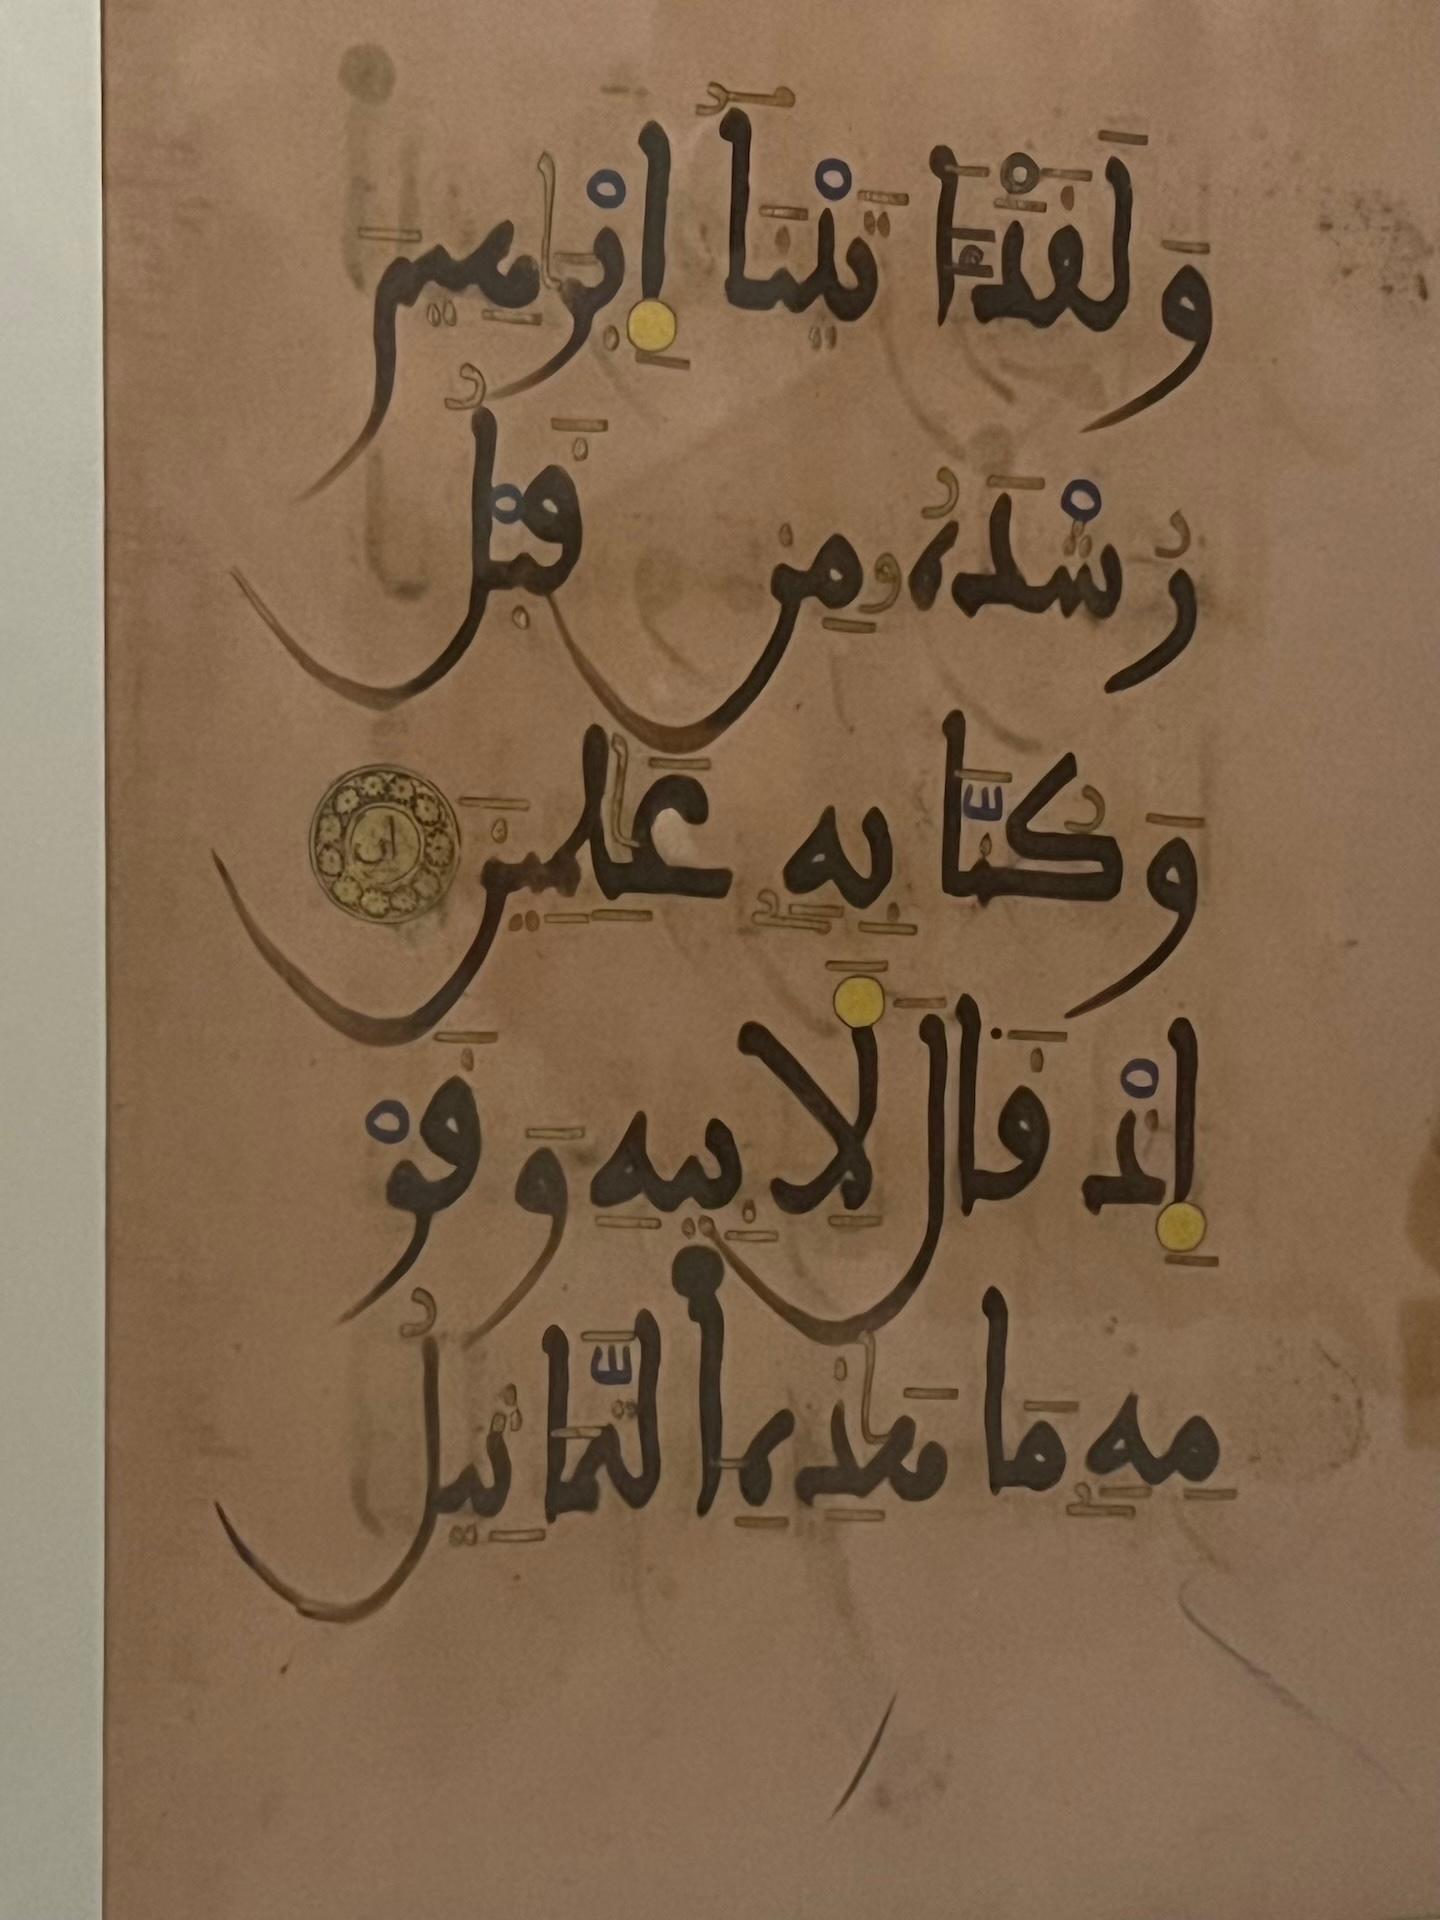 وَلَقَدْ ءَاتَيْنَآ إِبْرَٰهِيمَ
رُشْدَهُۥ مِن قَبْلُ
وَكُنَّا بِهِۦ عَٰلِمِينَ
إِذْ قَالَ لَأِبِيهِ وَقَوْ
مِهِۦ مَا هَٰذِهِ اَلتَّمَاثِيلُ